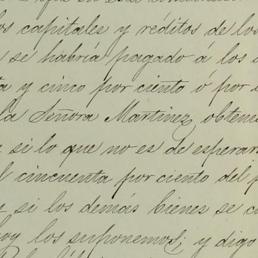 os capitales y réditos de los
se habría pagado á los
ta y cinco por ciento ó por
la Señora Martinez, obten
si lo que no es de esperar
l cincuenta por ciento del
si los demás bienes se
hoy los suponemos; y digo